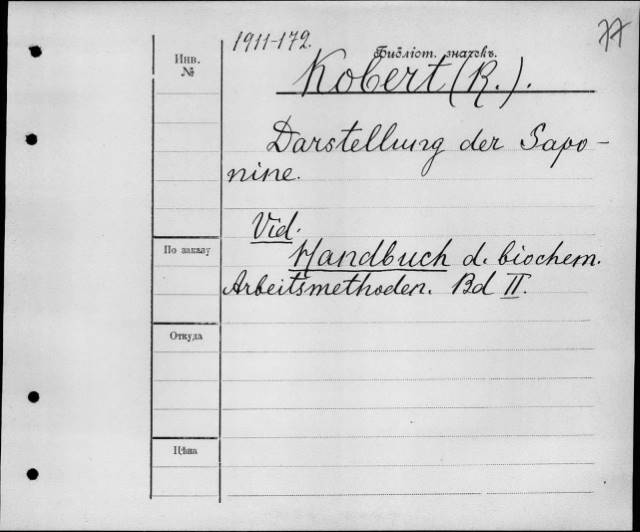 77
1911-172.
Инв.
№
Библіот. значекъ.
Kobert (R.).
Darstellung der Sapo-
nine.
Vid.
По заказу
Handbuch d. biochem.
Arbeitsmethoden. Bd II.
Откуда
Цѣна